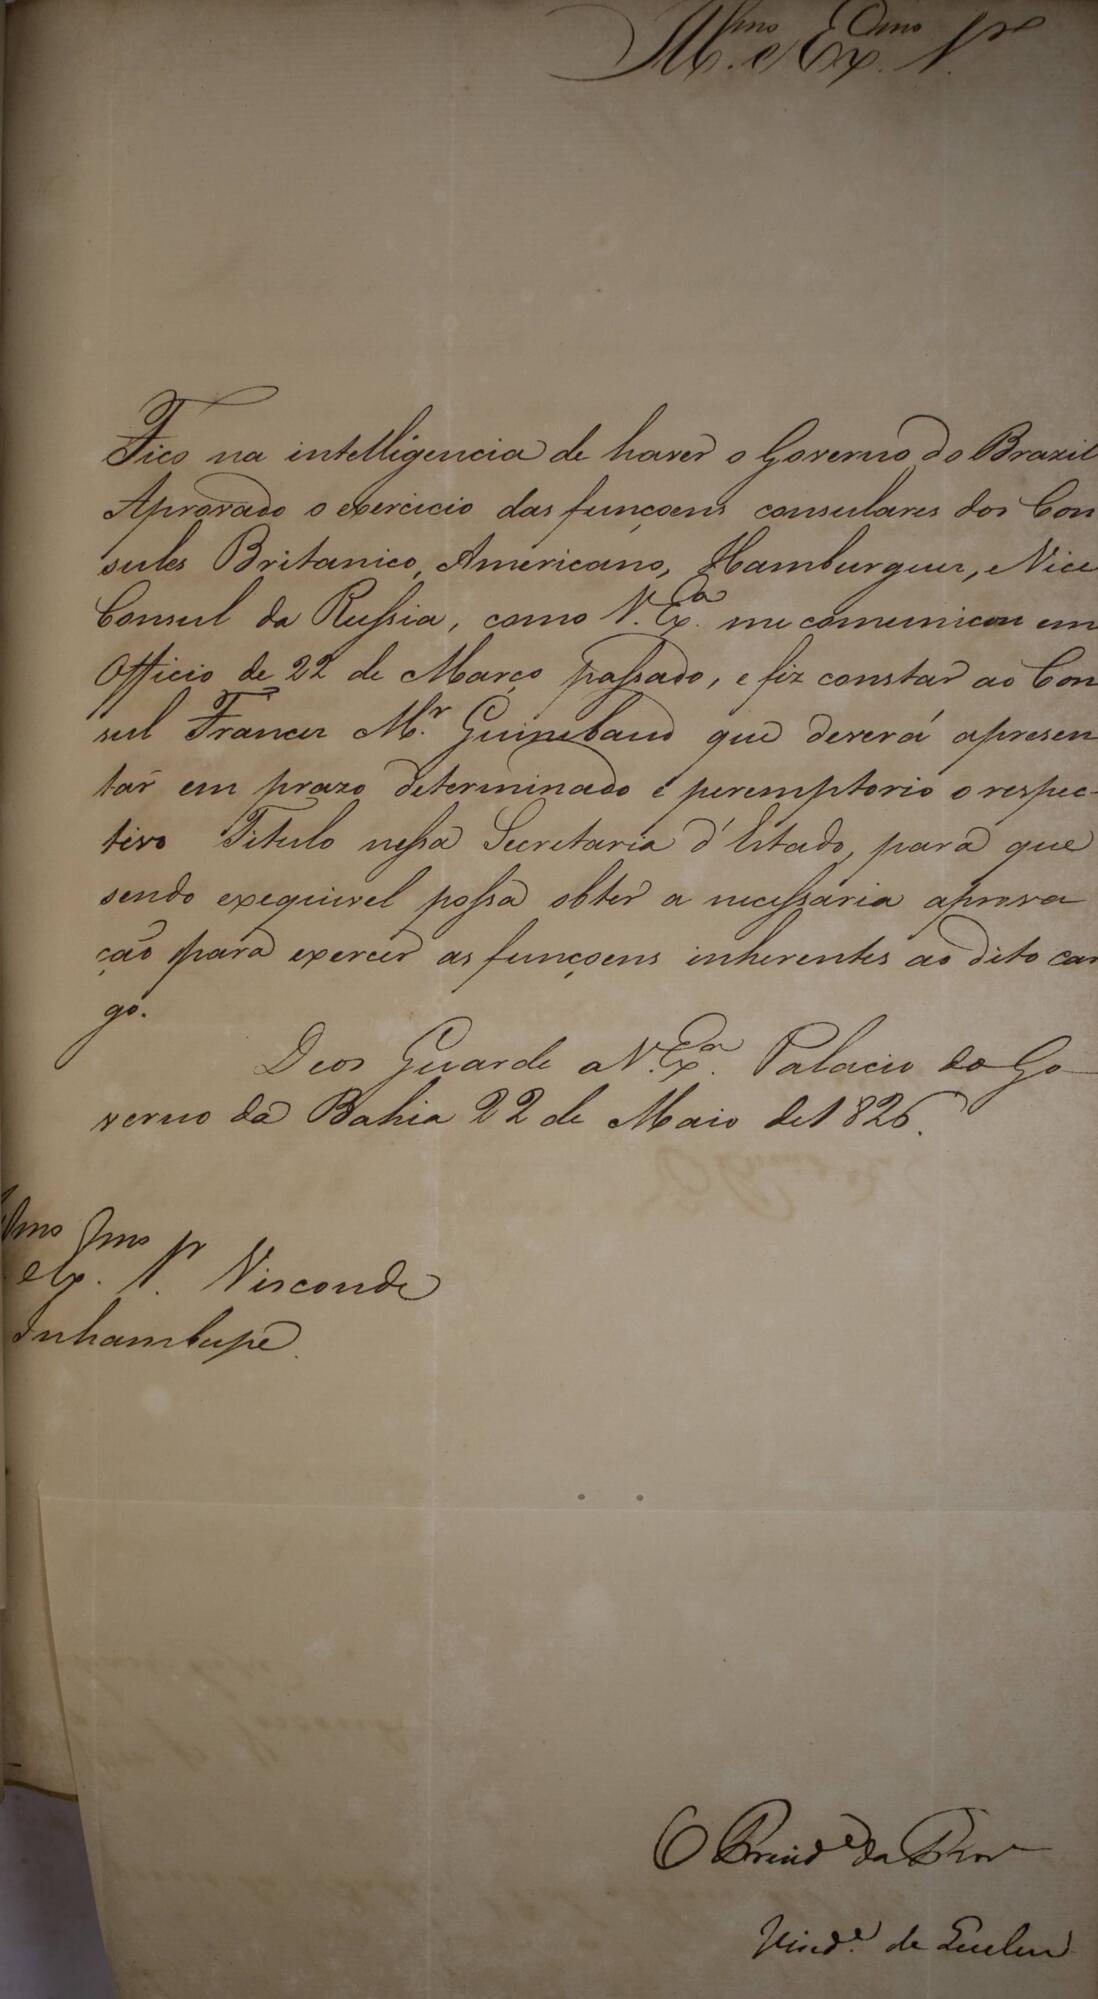 Ill.mo e Ex.mo Sr.
Fico na intelligencia de haver o Governo do Brazil
Aprovado o exercicio das funçoens consulares dos Con
sules Britanico, Americano, Hamburguez, e Vice
Consul da Russia, como V. Ex.a me comunicou em
Officio de 22 de Março passado, e fiz constar ao Con
sul Francez M.r Guinebaud que deverá apresen
tar em prazo determinado e peremptorio o respec-
tivo Titulo nessa Secretaria d'Estado, para que
sendo exequivel possa obter a necessaria aprova
ção para exercer as funçoens inherentes ao dito car
go.
Deos Guarde a V. Ex.a Palacio do Go
verno da Bahia 22 de Maio de 1826.
Ill.mo e Ex.mo Sr. Visconde
Inhambupe
O Prezid.e da Prov
Visd.e de Queluz